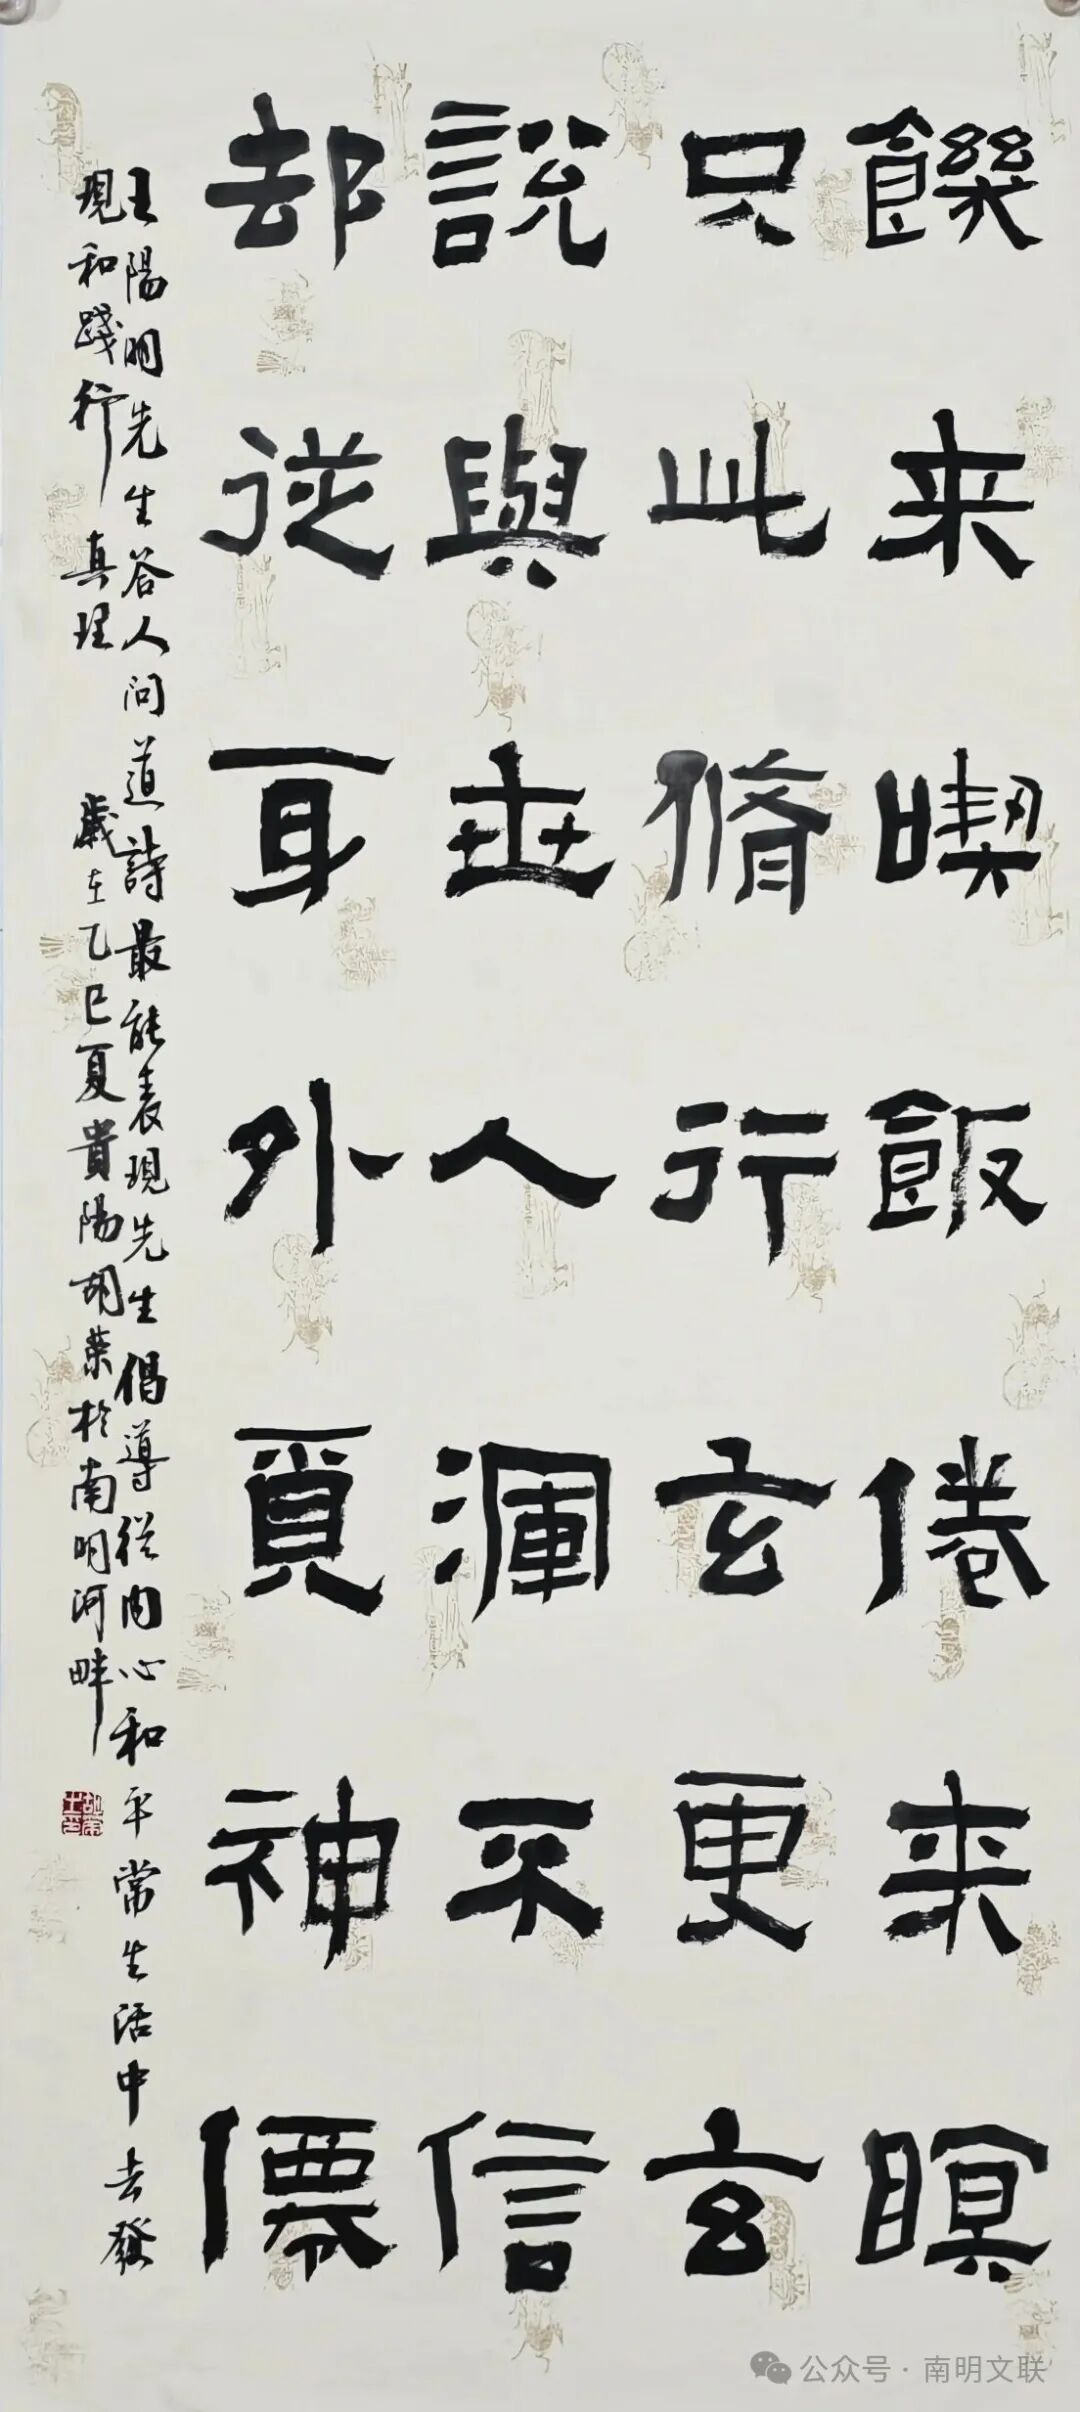 饑来喫飯倦来瞑
只此脩行玄更玄
說與世人渾不信
却從身外覓神僊
王陽明先生答人问道詩最能表現先生倡導從内心和平常生活中去發
現和踐行真理 歲在乙巳夏貴陽胡荣於南明河畔
胡荣之印
公众号·南明文联